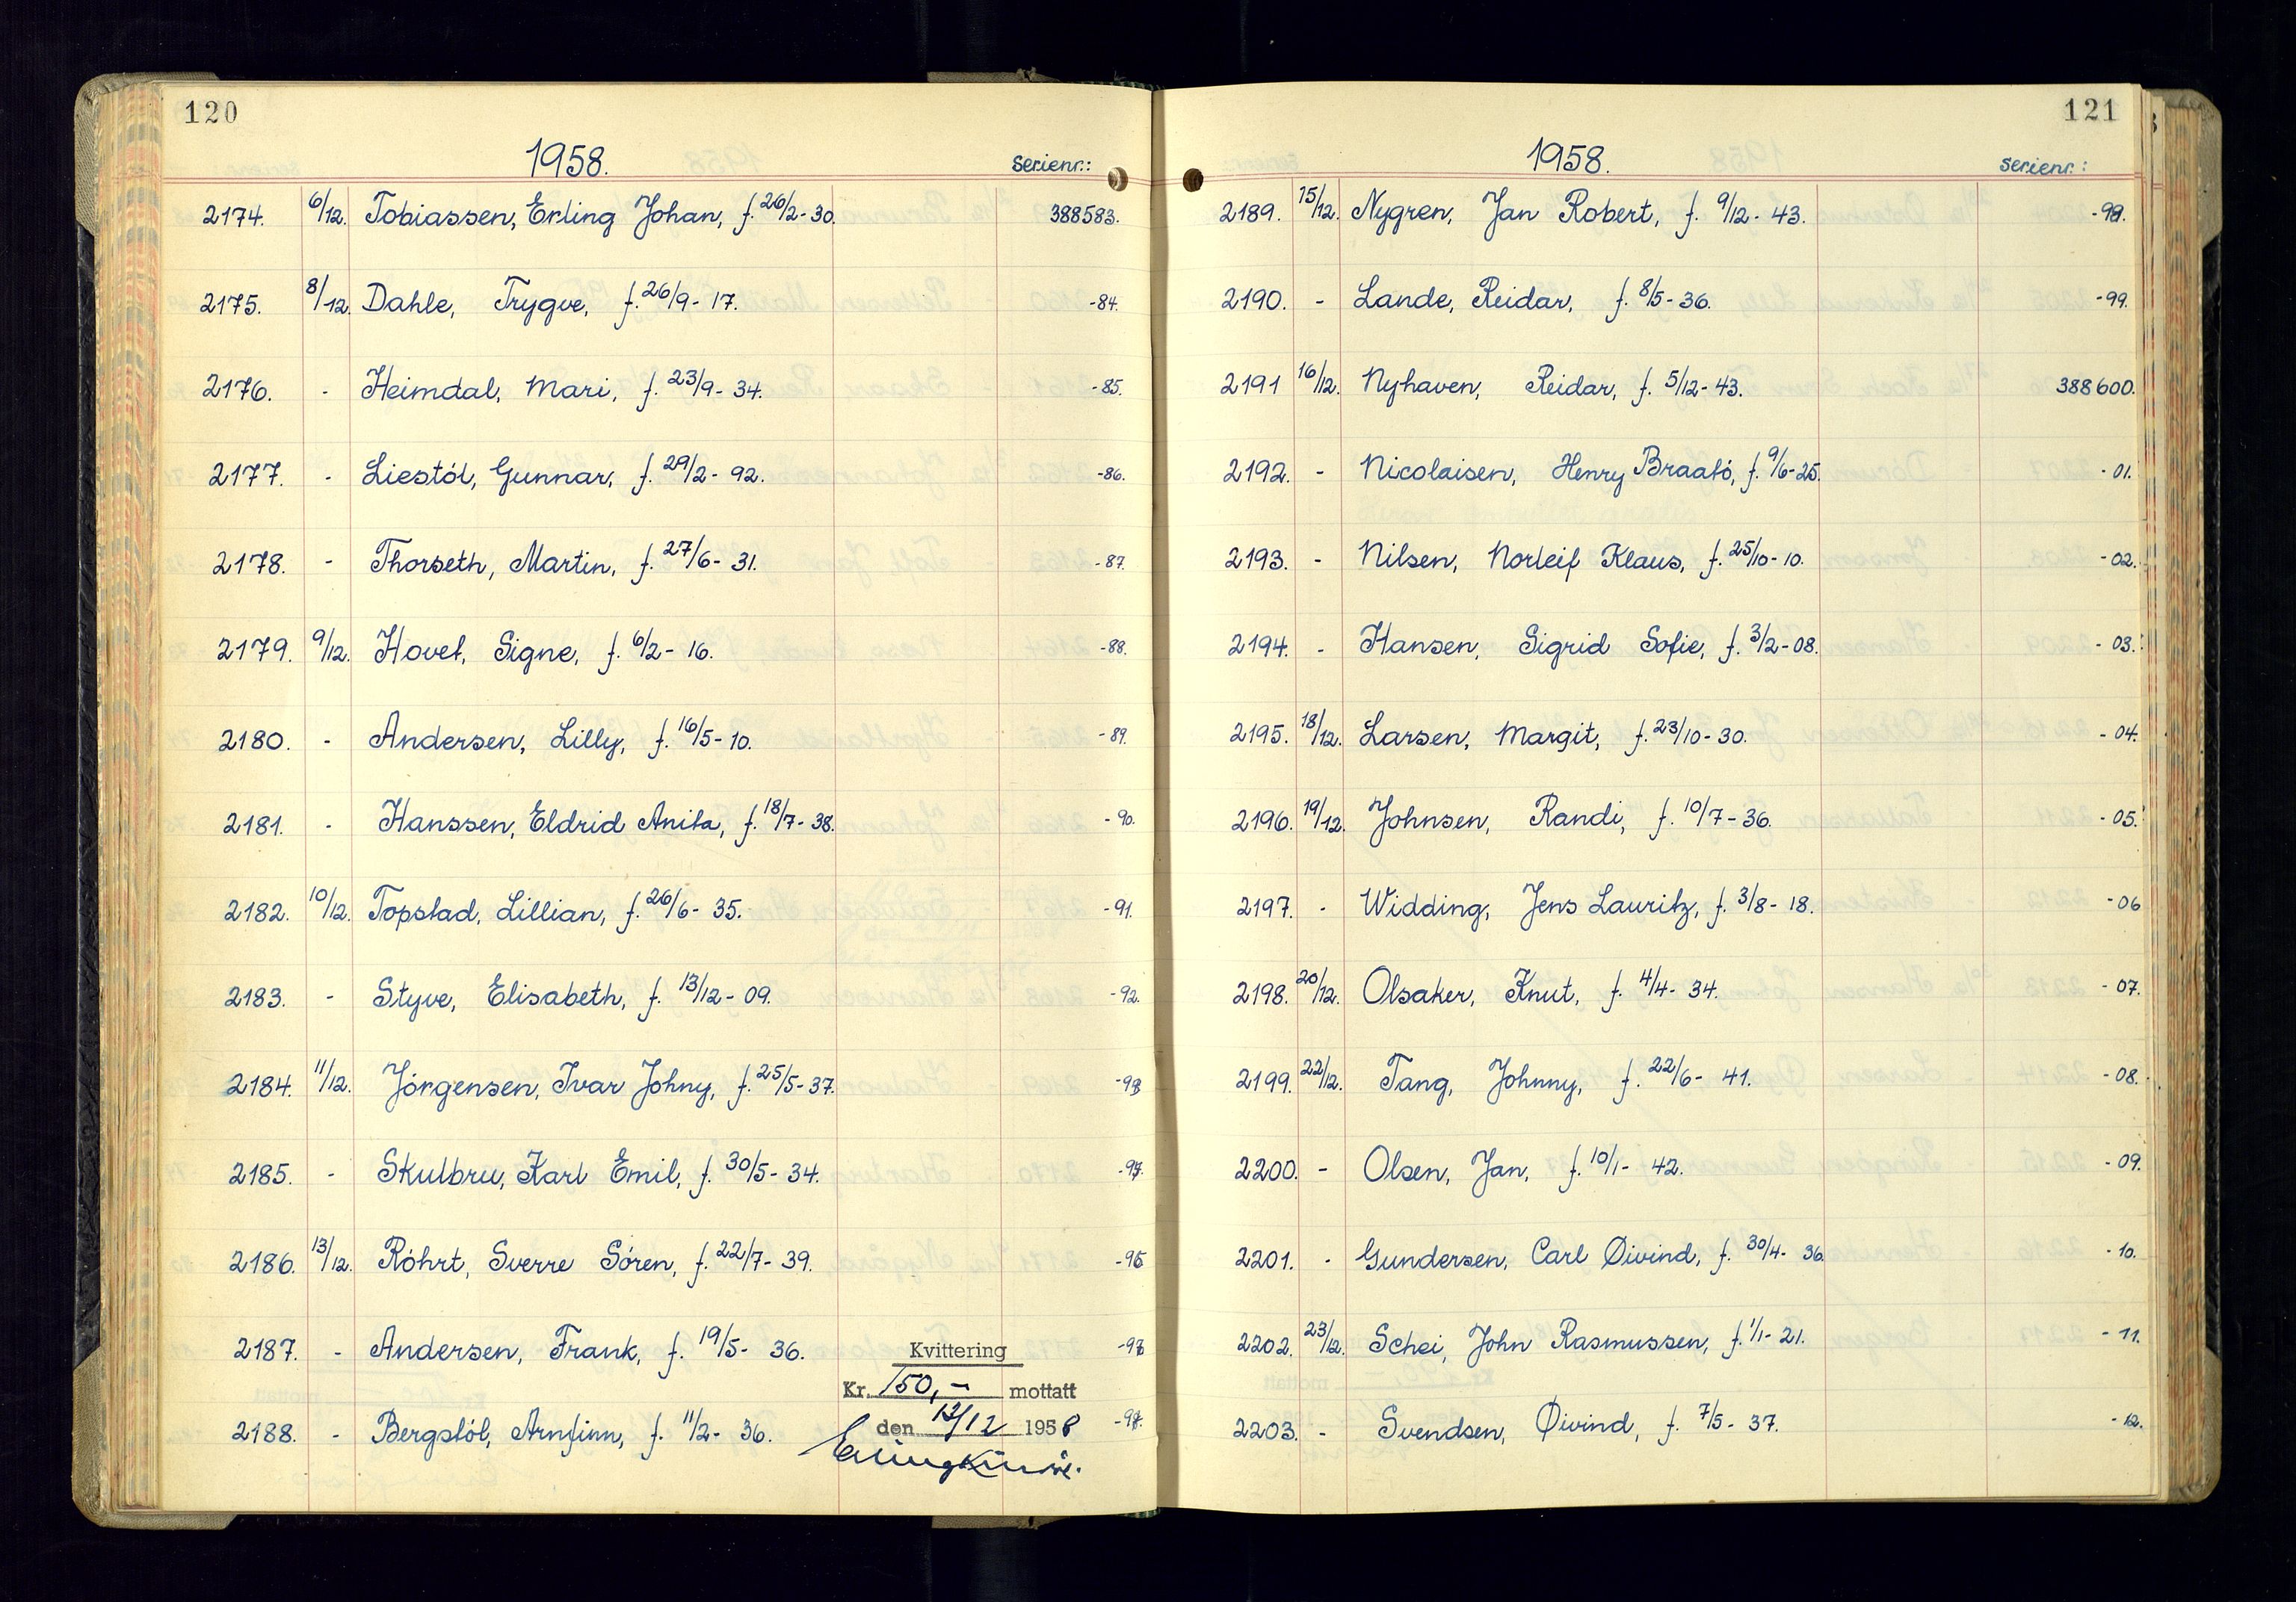 120
1958.
serienr.:
2174. 6/12. Tobiassen, Erling Johan, f. 26/2-30. 388583.
2175. 8/12. Dahle, Trygve, f. 26/9-17. -84.
2176. - Heimdal, Mari, f. 23/9-34. -85.
2177. - Liestöl, Gunnar, f. 29/2-92. -86.
2178. - Thorseth, Martin, f. 27/6-31. -87.
2179. 9/12. Hovel, Signe, f. 6/2-16. -88.
2180. - Andersen, Lilly, f. 16/5-10. -89.
2181. - Hanssen, Eldrid Anita, f. 18/7-38. -90.
2182. 10/12. Topstad, Lillian, f. 26/6-35. -91.
2183. - Styve, Elisabeth, f. 13/12-09. -92.
2184. 11/12. Jörgensen, Ivar Johny, f. 25/5-37. -93
2185. - Skulbru, Karl Emil, f. 30/5-34.
2186. 13/12. Röhrt, Sverre Sören, f. 22/7-39. -95
2187. - Andersen, Frank, f. 19/5-36.
Kvittering
Kr. 150,- mottatt
2188. - Bergstöl, Arnfinn, f. 11/2-36.
den 12/12 1958
121
1958.
serienr.:
2189. 15/12. Nygren, Jan Robert, f. 9/12-43. -98.
2190. - Lande, Reidar, f. 8/5-36. -99.
2191 16/12. Nyhaven, Reidar, f. 5/12-43. 388600.
2192. - Nicolaisen, Henry Braatö, f. 9/6-25. -01.
2193. - Nilsen, Norleif Klaus, f. 25/10-10. -02.
2194. - Hansen, Sigrid Sofie, f. 3/2-08. -03.
2195. 18/12. Larsen, Margit, f. 23/10-30. -04.
2196. 19/12. Johnsen, Randi, f. 10/7-36. -05.
2197. - Widding, Jens Lauritz, f. 3/8-18. -06
2198. 20/12. Olsaker, Knut, f. 4/4-34. -07.
2199. 22/12. Tang, Johnny, f. 22/6-41. -08.
2200. - Olsen, Jan, f. 10/1-42. -09.
2201. - Gundersen, Carl Øivind, f. 30/4-36. -10.
2202. 23/12. Schei, John Rasmussen, f. 1/1-21. -11.
2203. - Svendsen, Øivind, f. 7/5-37. -12.